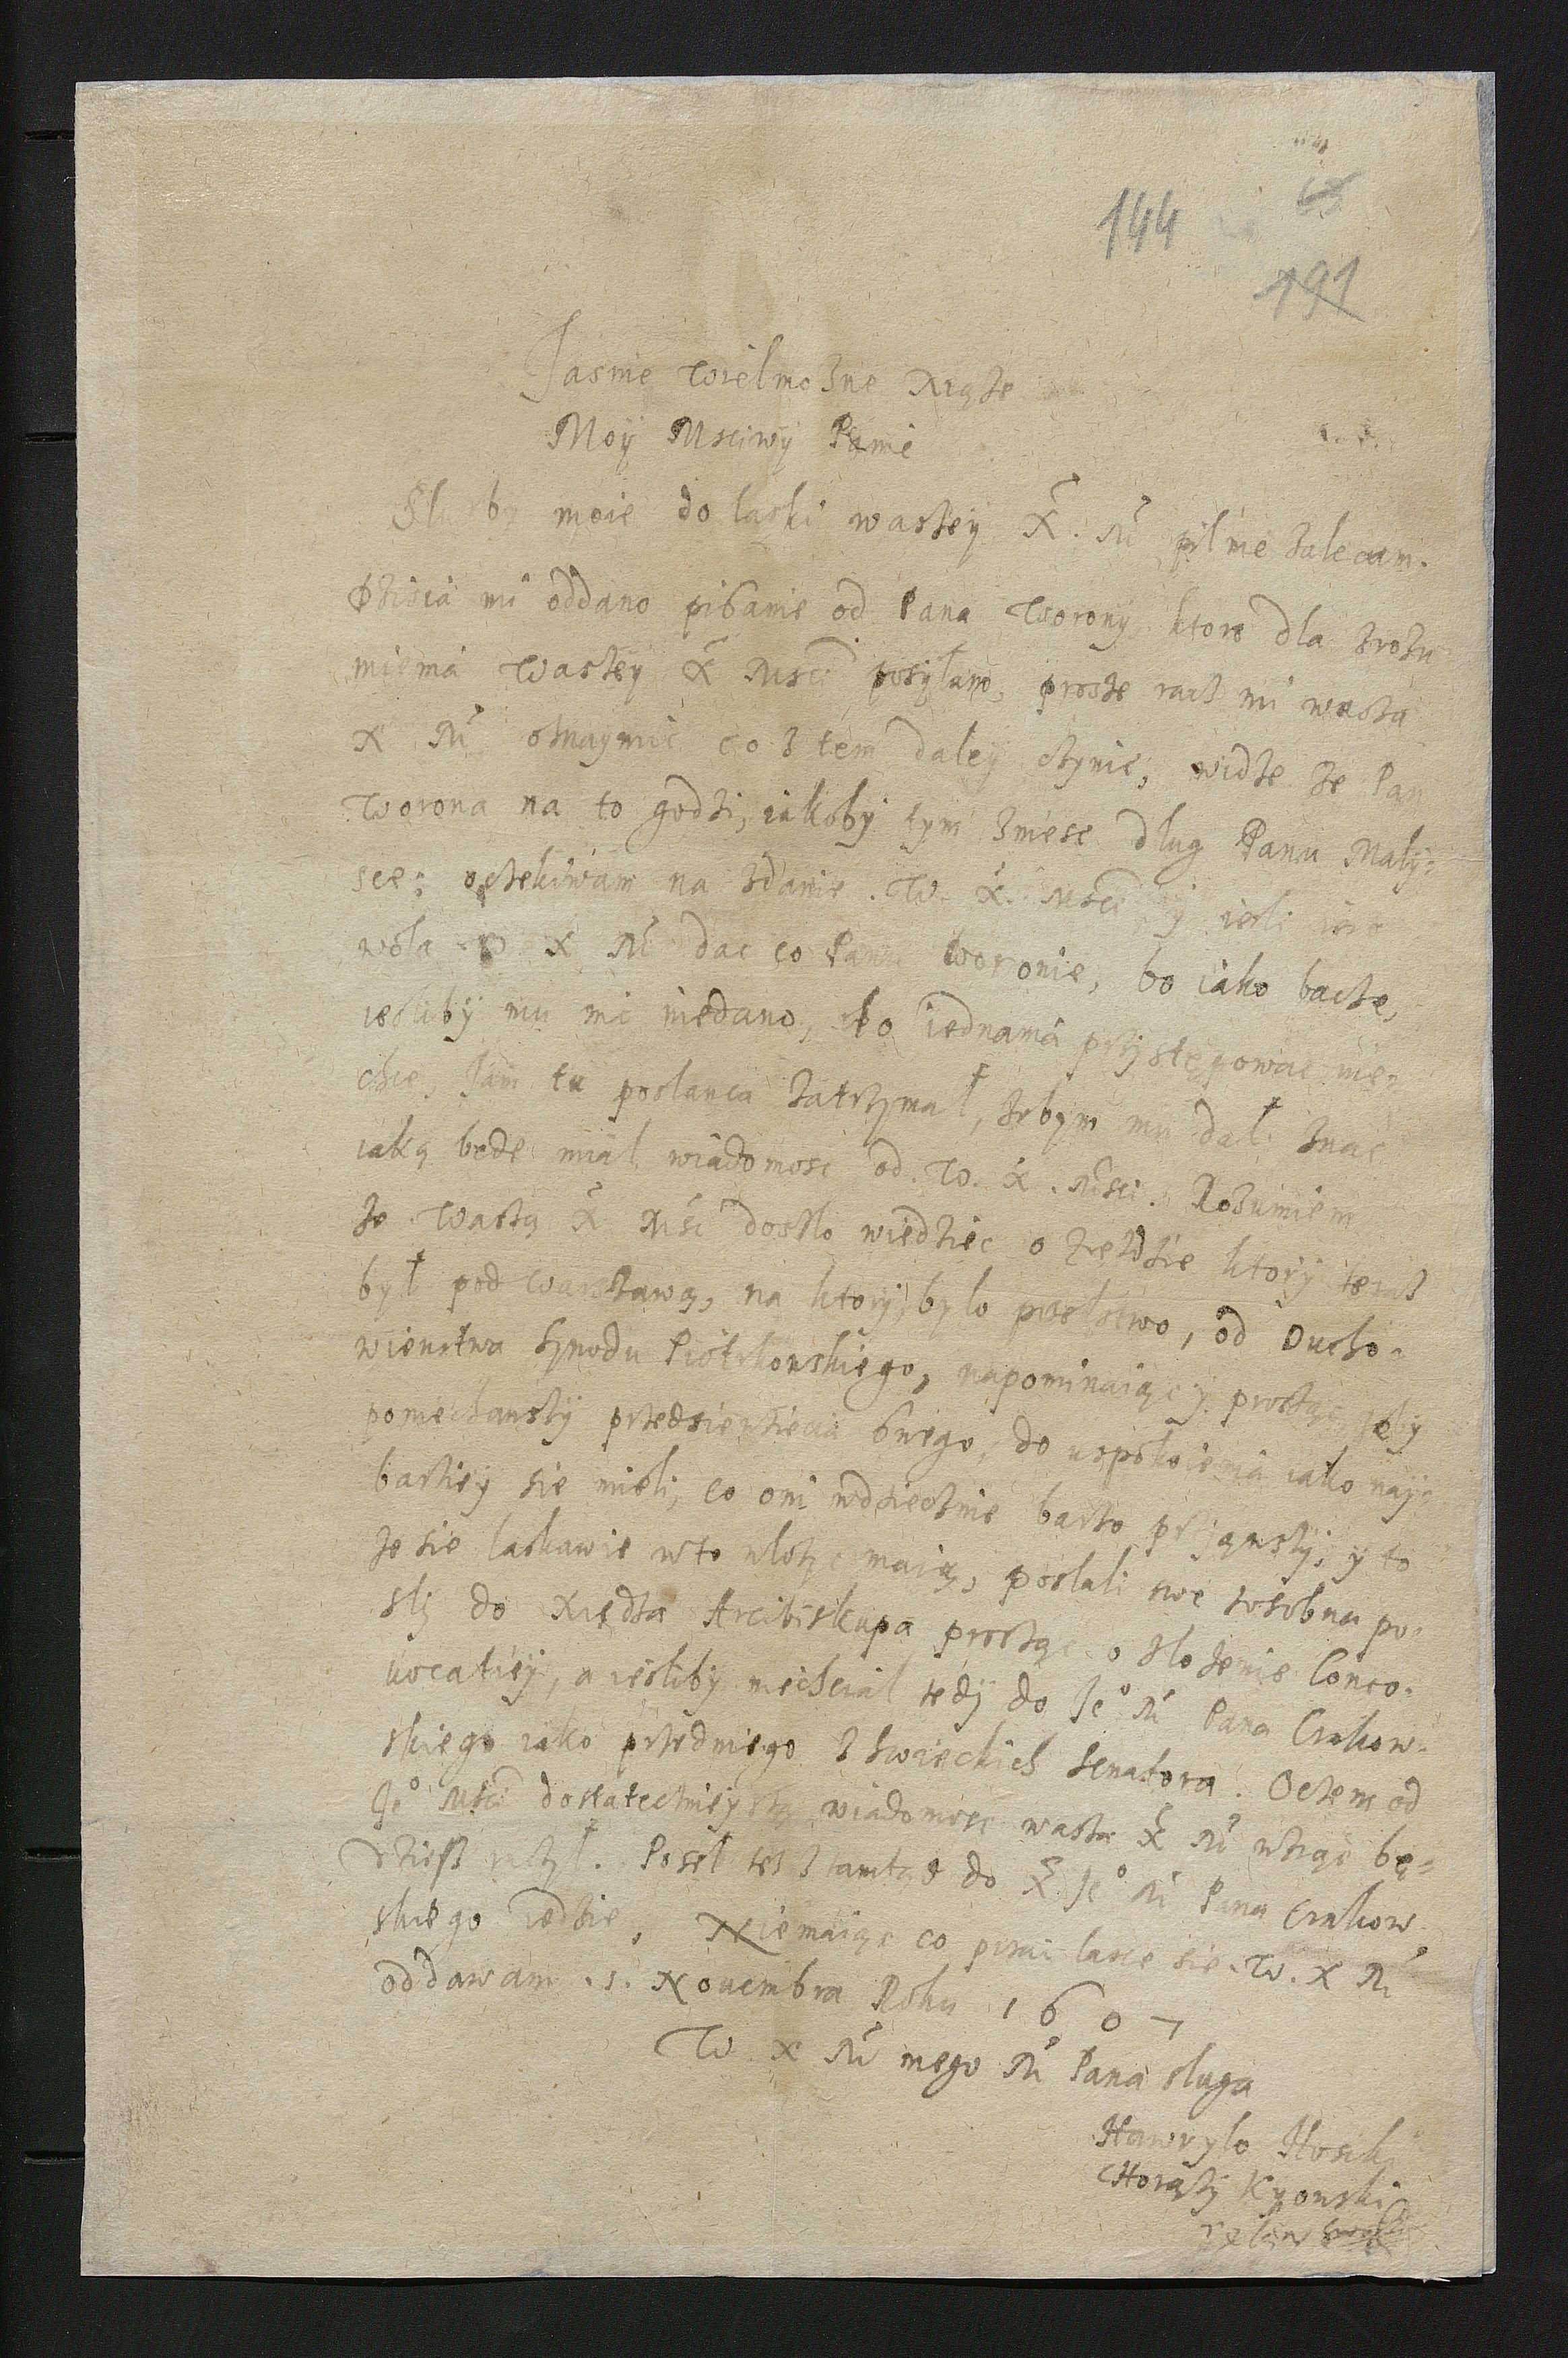 144
191
Jasnie Wielmozne Xiąże
Moy Msciwy Panie
Sluzby moie do laski waszey X. M pilnie zalecam.
Dzisia mi oddano pisanie od Pana Worony ktore dla zrozu
mienia Waszey X Msci posyłam, prosze racz mi wasza
X M oznaymic co z tem daley czynic, widze ze Pan
Worona na to godzi, iakoby tym zniesc dlug Panu Maly-
sce: oczekiwam na zdanie W. X. Msci y iesli iest
wola W X M dac co Panu Woronie, bo iako bacze,
iesliby mu nic niedano, do iednania przystępowac nie-
chce, Jam tu poslanca zatrzymał, zebym mu dał znac
iaką bede mial wiadomosc od W. X. Msci. Rozumiem
ze Waszą X Msć doszło wiedziec o zieździe ktory teraz
był pod Warszawą, na ktory bylo poselstwo, od Ducho-
wienstwa Synodu Piotrkowskiego, napominaiąc y prosząc zeby
poniechawszy przedsiewziecia swego, do uspokoienia iako nay-
barziey sie mieli, co oni wdziecznie barzo przyiąwszy, y to
ze sie laskawie w to wlozyc maią, poslali swe zosobna po-
sly do Xiędza Arcibiskupa prosząc o zlozenie Conuo-
uocatiey, a iesliby niechcial tedy do Je° M Pana Crakow-
skiego iako przedniego z swieckich senatora. Oczem od
Je° Msci dostatecznieyszą wiadomosc wasza X M wziąc bę-
dziesz raczył. Poseł tez ztamtąd do X Je° M Pana Crakow
skiego iedzie, Niemaiąc co pisac lasce sie W. X M
oddawam. 1. Nouembra Roku 1607
W X M mego M Pana sluga
Hawrylo Hosik
Chorąży Kyowski
ręką swą